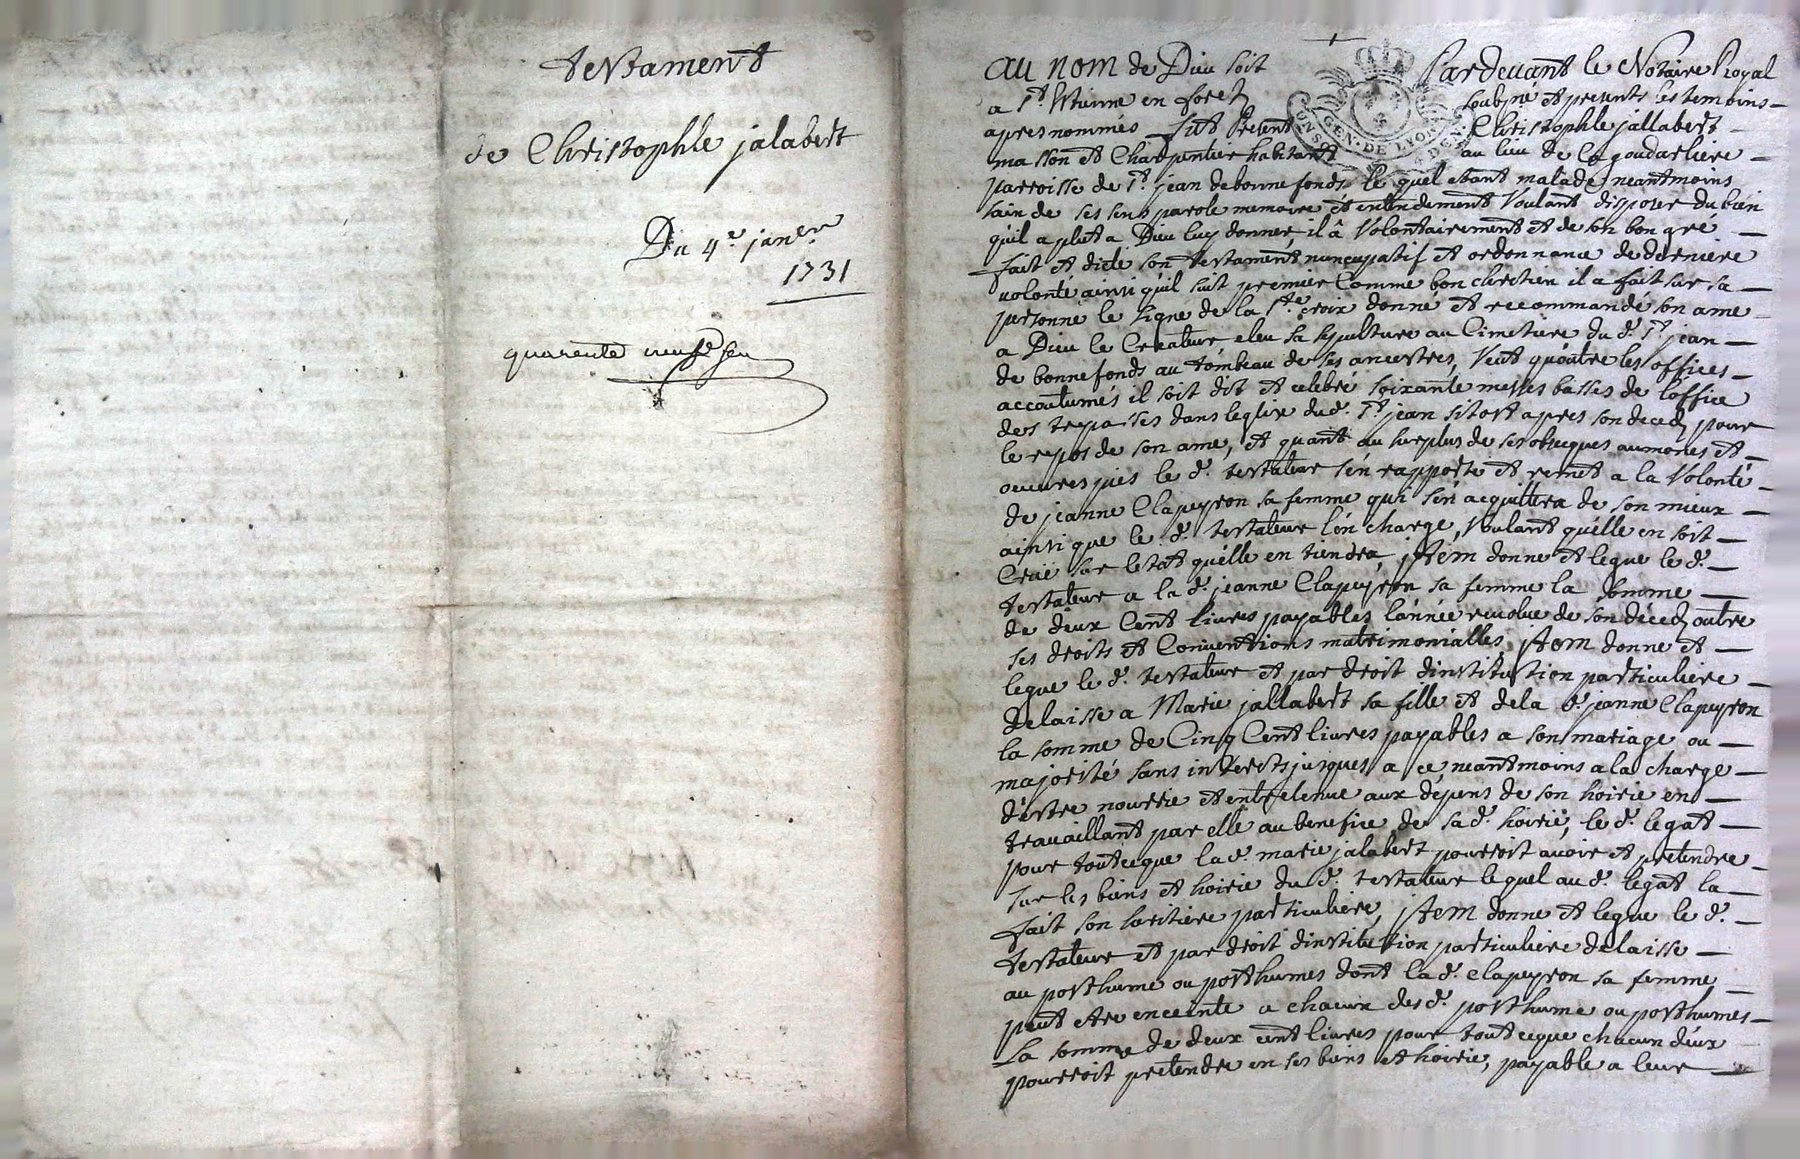 testament
de Christophle jalabert
Du 4e. janer.
1731
quarente neuf
au nom de Dieu soit Pardevant le Notaire Royal
a St. Etienne en forez soubné et presents les temoins
apres nommés fut Present Christophle jallabert
masson et Charpentier habitant au lieu de la goudarliere
parroisse de St. jean de bonnefonds le quel etant malade neantmoins
sain de ses sens parole memoire et entendement Voulant disposer du bien
qu'il a plut a Dieu luy donner, il â Volontairement et de son bon gré
fait et dicté son testament nuncupatif et ordonnance de derniere
volonté ainsi qu'il suit premier Comme bon chretien il a fait sur sa
personne le signe de la Ste. croix donné et recommandé son ame
a Dieu le Createur eleu sa sepulture au Cimetiere du d. St. jean
de bonnefonds au tombeau de ses ancestres, Veut qu'outre les offices
accoutumés il soit dit et celebré soixante messes basses de l'office
des trepassés dans leglise dud. St. jean sitost apres son decez pour
le repos de son ame, et quant au surplus de ses obseques aumones et
oeuvres pies le d. testateur s'en rapporte et remet a la Volonté
de jeanne Clapeyron sa femme qui s'en acquittera de son mieux
ainsi que le d. testateur l'en charge, Voulant qu'elle en soit
Crüe sur letat qu'elle en tiendra, jtem donne et legue le d.
testateur a la d. jeanne Clapeyron sa femme la somme
de deux Cent livres payables l'année revolue de son décez outre
ses droits et Conventions matrimonialles, jtem donne et
legue le d. testateur et par droit dinstitution particuliere
delaisse a Marie jallabert sa fille et dela d. jeanne Clapeyron
la somme de Cinq Cent livres payables a son mariage ou
majorité sans interets jusques a ce neantmoins a la charge
d'estre nourrie et entretenue aux dépens de son hoirie en
travaillant par elle au benefice de sa d. hoirie, le d. legat
pour tout ceque la d. marie jalabert pourroit avoir et pretendre
sur les biens et hoirie du d. testateur le quel au d. legat la
fait son heritiere particuliere, jtem donne et legue le d.
testateur et par droit dinstitution particuliere delaisse
au posthume ou posthumes dont la d. clapeyron sa femme
peut etre enceinte a chacun des d. posthume ou posthumes
La somme de deux cent livres pour tout ceque chacun d'eux
pourroit pretendre en ses biens et hoirie, payable a leur